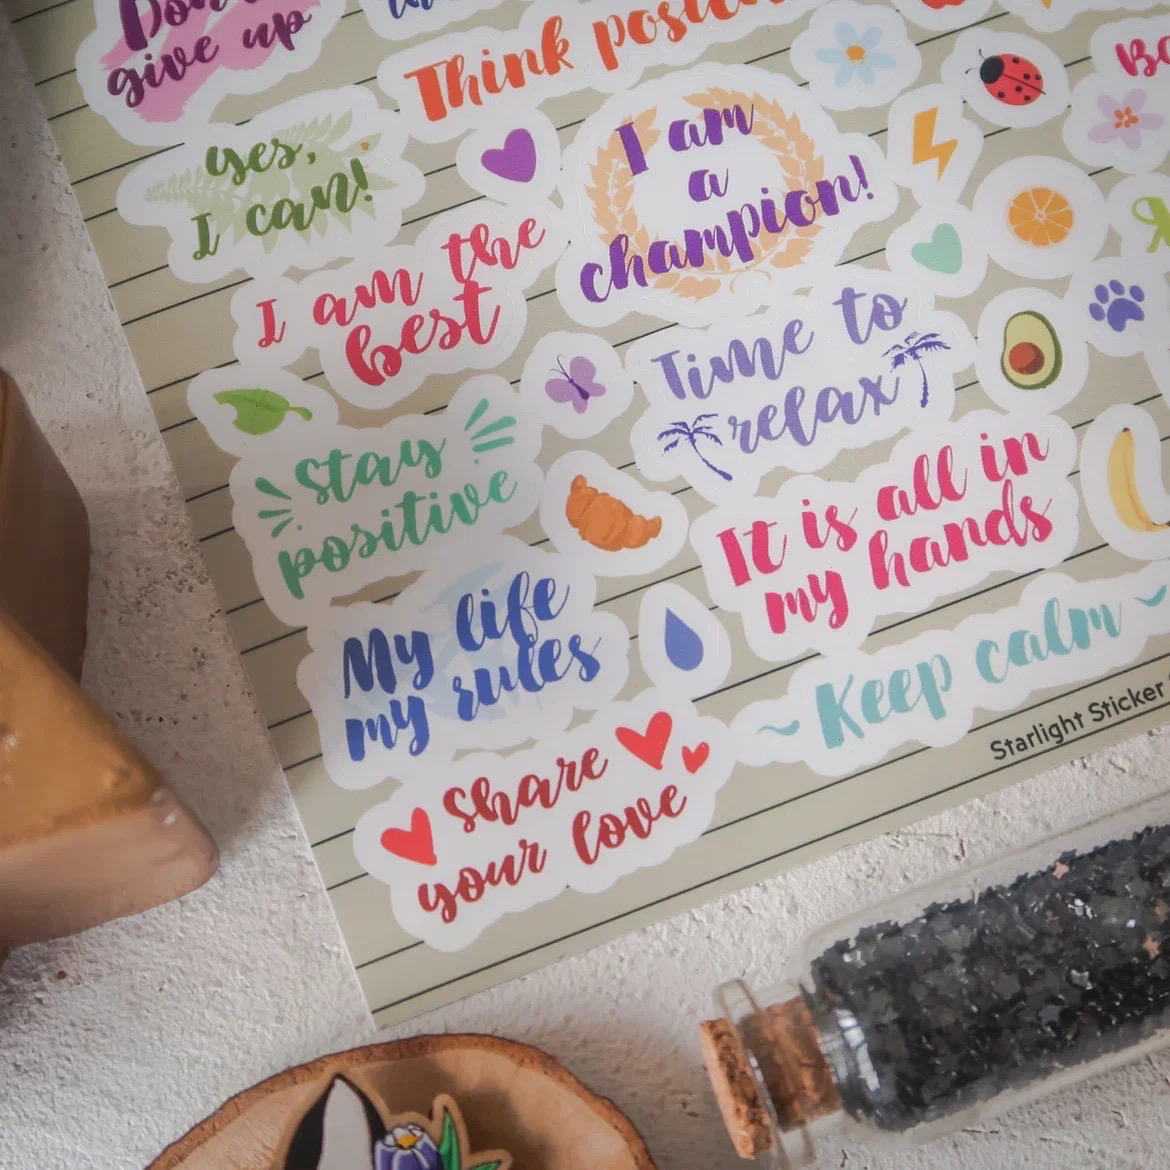 give up
Think
Yes,
I can!
I am
a
champion!
I am the
best
Time to
relax
Stay
positive
It is all in
my hands
My life
my rules
Keep calm
Share
your love
Starlight Sticker